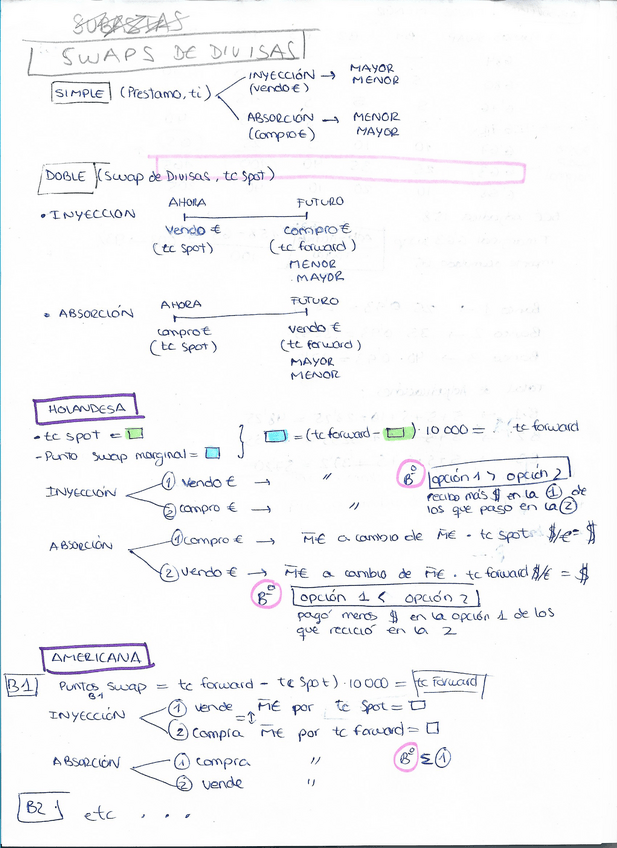 SUBASTAS
SWAPS DE DIVISAS
SIMPLE (Prestamo, ti)
INYECCIÓN → MAYOR
(vendo €) MENOR
ABSORCIÓN → MENOR
(compro €) MAYOR
DOBLE (Swap de Divisas, tc spot)
• INYECCION
AHORA FUTURO
vendo € compro €
(tc spot) (tc forward)
MENOR
MAYOR
• ABSORCIÓN
AHORA FUTURO
compro € vendo €
(tc spot) (tc forward)
MAYOR
MENOR
HOLANDESA
- tc spot =
- Punto swap marginal =
= (tc forward - ) · 10 000 = tc forward
INYECCIÓN
① vendo € → "
② compro € → "
Bº opción 1 > opción 2
recibo más $ en la ① de
los que pago en la ②
ABSORCIÓN
① compro € → M€ a cambio de M€ · tc spot $/€ = $
② vendo € → M€ a cambio de M€ · tc forward $/€ = $
Bº opción 1 < opción 2
pagó menos $ en la opción 1 de los
que recició en la 2
AMERICANA
B1 Puntos swap B1 = tc forward - tc spot) · 10 000 = tc forward
INYECCIÓN
① vende M€ por tc spot =
② compra M€ por tc forward =
ABSORCIÓN
① compra "
② vende "
Bº Σ ①
B2 etc . . .